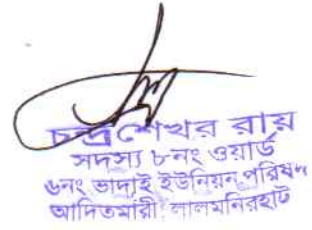 চন্দ্রশেখর রায়
সদস্য ৮নং ওয়ার্ড
৬নং ভাদাই ইউনিয়ন পরিষদ
আদিতমারী লালমনিরহাট